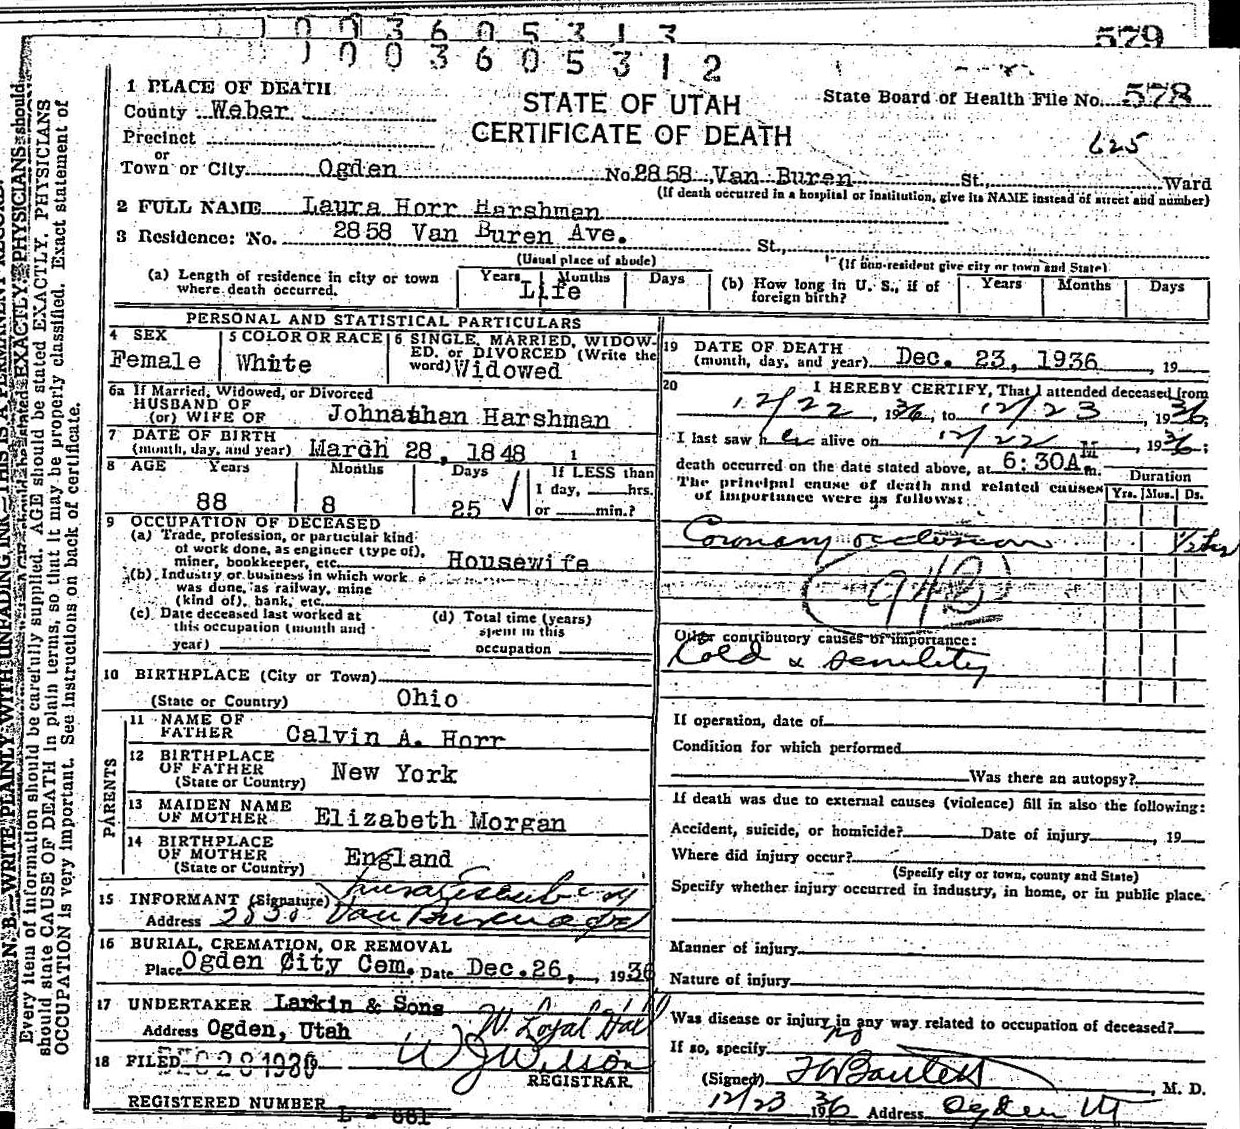 1003605313
1003605312
579
1 PLACE OF DEATH
STATE OF UTAH
CERTIFICATE OF DEATH
State Board of Health File No. 578
625
County Weber
Precinct
or
Town or City Ogden No. 2858 Van Buren St., Ward
(If death occurred in a hospital or institution, give its NAME instead of street and number)
2 FULL NAME Laura Horr Harshman
3 Residence: No. 2858 Van Buren Ave. St.,
(Usual place of abode) (If non-resident give city or town and State)
(a) Length of residence in city or town where death occurred. Years Months Days
Life
(b) How long in U. S., if of foreign birth? Years Months Days
PERSONAL AND STATISTICAL PARTICULARS
4 SEX
Female
5 COLOR OR RACE
White
6 SINGLE, MARRIED, WIDOW-
ED, or DIVORCED (Write the
word) Widowed
6a If Married, Widowed, or Divorced
HUSBAND OF
(or) WIFE OF Johnathan Harshman
7 DATE OF BIRTH
(month, day, and year) March 28, 1848
8 AGE Years Months Days If LESS than
1 day, hrs.
88 8 25 or min.?
9 OCCUPATION OF DECEASED
(a) Trade, profession, or particular kind
of work done, as engineer (type of),
miner, bookkeeper, etc. Housewife
(b) Industry or business in which work
was done, as railway, mine
(kind of), bank, etc.
(c) Date deceased last worked at
this occupation (month and
year)
(d) Total time (years)
spent in this
occupation
10 BIRTHPLACE (City or Town)
(State or Country) Ohio
PARENTS
11 NAME OF
FATHER Calvin A. Horr
12 BIRTHPLACE
OF FATHER New York
(State or Country)
13 MAIDEN NAME
OF MOTHER Elizabeth Morgan
14 BIRTHPLACE
OF MOTHER England
(State or Country)
15 INFORMANT (Signature)
Address Van Buren
16 BURIAL, CREMATION, OR REMOVAL
Place Ogden City Cem. Date Dec. 26, 1936
17 UNDERTAKER Larkin & Sons
Address Ogden, Utah W. Loyal Hall
18 FILED DEC 28 1936 W J Wilson
REGISTRAR
REGISTERED NUMBER L - 661
19 DATE OF DEATH
(month, day, and year) Dec. 23, 1936, 19
20 I HEREBY CERTIFY, That I attended deceased from
12/22, 1936, to 12/23, 1936
I last saw her alive on 12/22, 1936;
death occurred on the date stated above, at 6:30A M m.
The principal cause of death and related causes
of importance were as follows:
Duration
Yrs. Mos. Ds.
Coronary occlusion 1/2 hr
94B
Other contributory causes of importance:
Cold & senility
If operation, date of
Condition for which performed
Was there an autopsy?
If death was due to external causes (violence) fill in also the following:
Accident, suicide, or homicide? Date of injury, 19
Where did injury occur?
(Specify city or town, county and State)
Specify whether injury occurred in industry, in home, or in public place.
Manner of injury
Nature of injury
Was disease or injury in any way related to occupation of deceased?
no
If so, specify
(Signed) , M. D.
12/23 1936 Address Ogden Ut
N. B.—WRITE PLAINLY WITH UNFADING INK—THIS IS A PERMANENT RECORD.
Every item of information should be carefully supplied. AGE should be stated EXACTLY. PHYSICIANS
should state CAUSE OF DEATH in plain terms, so that it may be properly classified. Exact statement of
OCCUPATION is very important. See instructions on back of certificate.